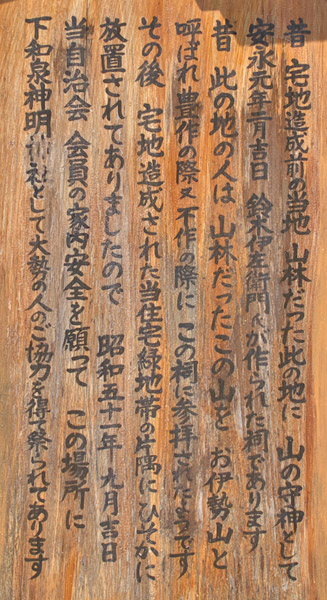 昔 宅地造成前の当地 山林だった此の地に 山の守神として
安永元年二月吉日 鈴木伊左衛門氏が作られた祠であります
昔 此の地の人は 山林だったこの山を お伊勢山と
呼ばれ 豊作の際又不作の際に この祠に参拝されたようです
その後 宅地造成された当住宅緑地帯の片隅にひそかに
放置されてありましたので 昭和五十一年 九月吉日
当自治会 会員の家内安全を願って この場所に
下和泉神明社として大勢の人のご協力を得て祭られてあります